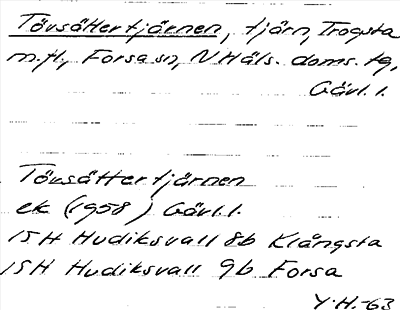 Tövsättertjärnen, tjärn, Trogsta
m.fl., Forsa sn, N Häls. doms. tg,
Gävl. l.
Tövsättertjärnen
ek (1958) Gävl. l.
15H Hudiksvall 8b Klångsta
15H Hudiksvall 9b Forsa
Y.H.-63